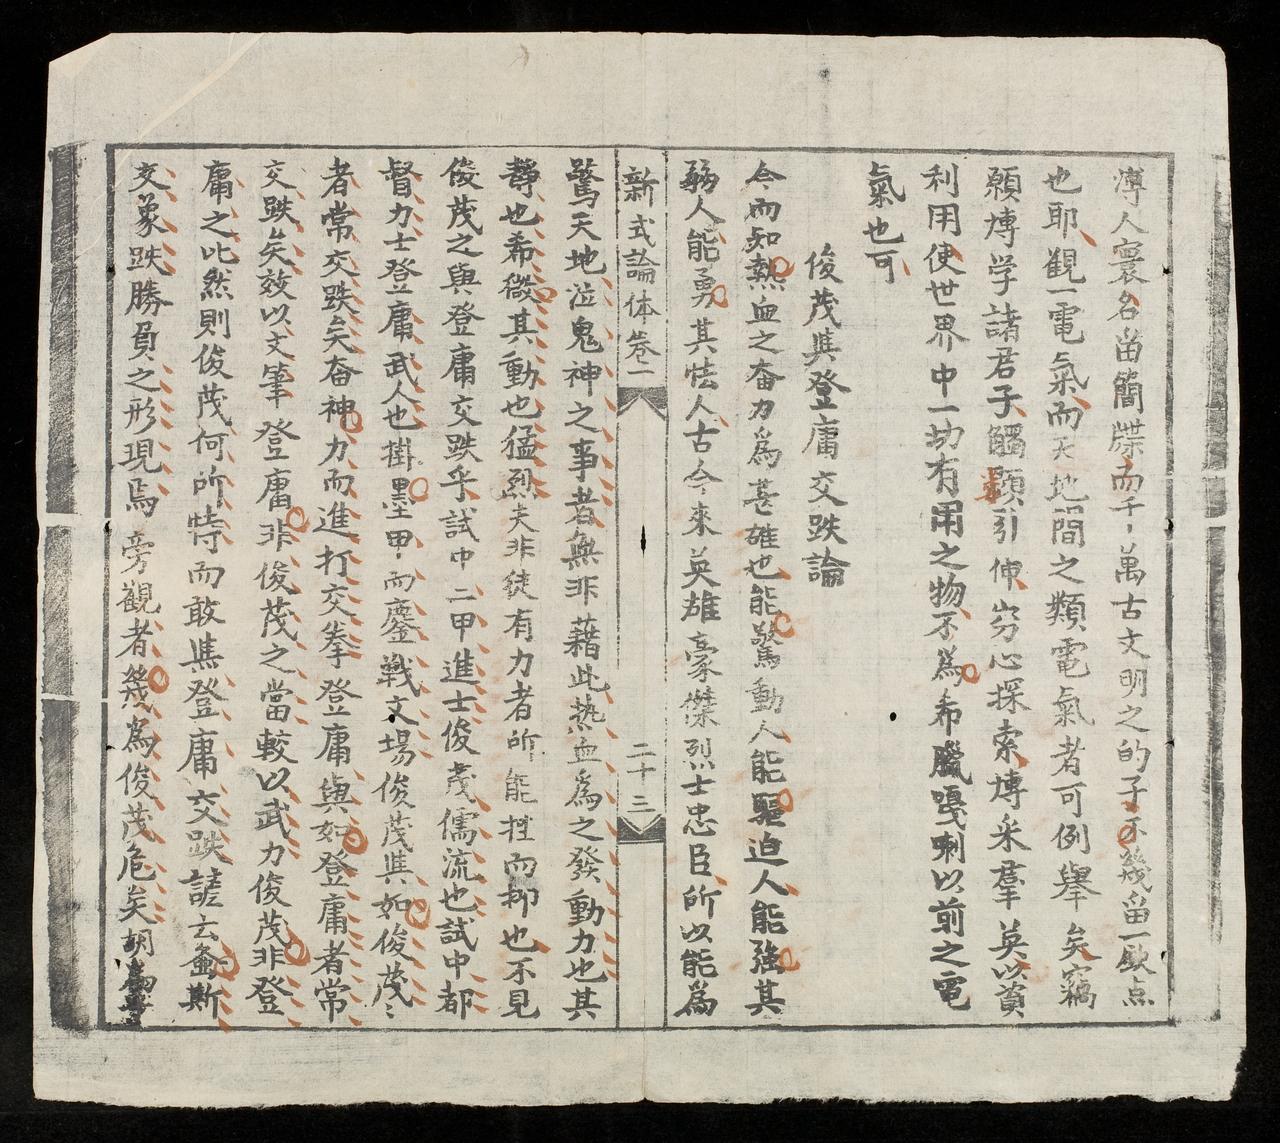 漙人寰名畱簡牒而千〻萬古文明之的子不幾畱一缺点
也耶觀一電氣而天地間之類電氣者可例舉矣竊
願博学諸君子觸類引伸窮心探索博采羣英以資
利用使世界中一切有用之物不爲希臘嘎喇以前之電
氣也可
俊茂與登庸交跌論
今而知熱血之奋力爲甚雄也能驚動人能驅迫人能強其
弱人能勇其怯人古今來英雄豪傑烈士忠臣所以能爲
驚天地泣鬼神之事者無非藉此热血爲之發動力也其
靜也希微其動也猛烈夫非徒有力者所能
而抑也不見
俊茂之與登庸交跌乎試中二甲進士俊茂儒流也試中都
督力士登庸武人也掛墨甲而鏖戰文場俊茂與如俊茂〻
者常交跌矣奋神力而進打交拳登庸與如登庸者常
交跌矣效以文筆登庸非俊茂之當較以武力俊茂非登
庸之比然則俊茂何所恃而敢與登庸交跌諺云
斯
交象跌勝負之形現焉旁觀者幾爲俊茂危矣胡爲乎
新式論体卷二
二十三